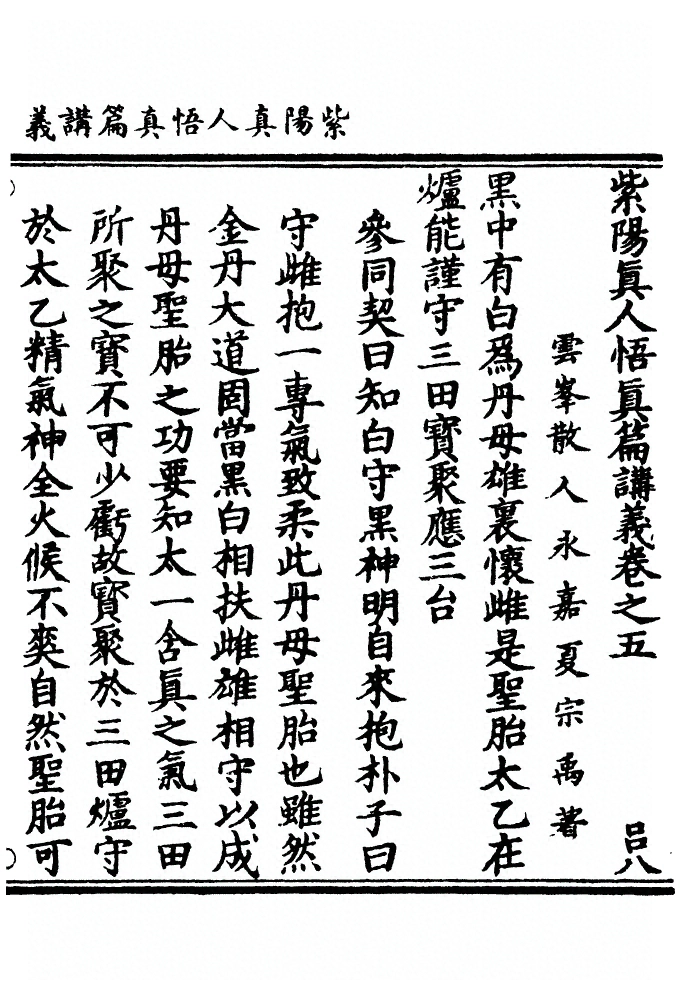 紫陽真人悟真篇講義
紫陽眞人悟眞篇講義卷之五 吕八
雲峯散人永嘉夏宗禹著
黑中有白爲丹母雄裏懷雌是聖胎太乙在
爐能謹守三田寳聚應三台
參同契曰知白守黑神明自來抱朴子曰
守雌抱一專氣致柔此丹母聖胎也雖然
金丹大道固當黑白相扶雌雄相守以成
丹母聖胎之功要知太一含眞之氣三田
所聚之寳不可少虧故寳聚於三田爐守
於太乙精氣神全火候不爽自然聖胎可